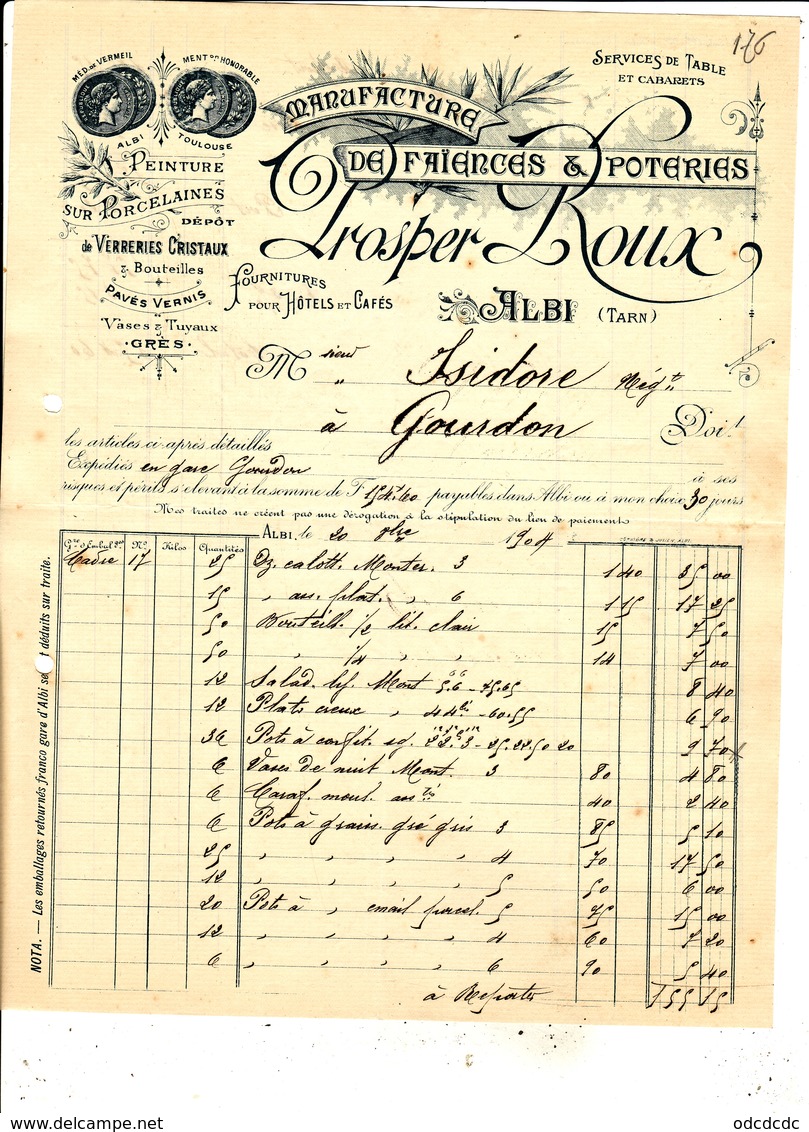 176
MÉD. DE VERMEIL MENT.ON HONORABLE
ALBI TOULOUSE
SERVICES DE TABLE
ET CABARETS
MANUFACTURE
DE FAÏENCES & POTERIES
Prosper Roux
ALBI (TARN)
PEINTURE
SUR PORCELAINES
DÉPÔT
de VERRERIES CRISTAUX
& Bouteilles
PAVÉS VERNIS
Vases & Tuyaux
GRÈS
FOURNITURES
POUR HÔTELS ET CAFÉS
Monsieur Isidore Négt
à Gourdon Doit
les articles ci-après détaillés
Expédiés en gare Gourdon à ses
risques et périls s'élevant à la somme de F. payables dans Albi ou à mon choix, 30 jours
Mes traites ne créent pas une dérogation à la stipulation du lieu de paiement
ALBI, le 20 8bre 1904
Gre d'Embal.ges Nos Kilos Quantités
Cadre 17 25 Dz. calott. Monter. 3 1 40 35 00
15 " ass. plat. " 6 1 15 17 25
50 Bouteill. 1/2 lit. clair 15 7 50
50 " 1/4 " " 14 7 00
12 Salad. Mont 5.6 - 75.65 8 40
12 Plats creux " - 60.55 6 90
36 Pots à confit. - 25.22.50 20 9 70
6 Vases de nuit Mont. 3 80 4 80
6 Caraf. moul. 40 2 40
6 Pots à grais. gré gris 3 85 5 10
25 " " " " 4 70 17 50
12 " " " " 5 50 6 00
20 Pots à " email porcel. 5 75 15 00
12 " " " " 4 60 7 20
6 " " " " 6 90 5 40
à Reporter 155 15
NOTA. — Les emballages retournés franco gare d'Albi seront déduits sur traite.
odcdcdc